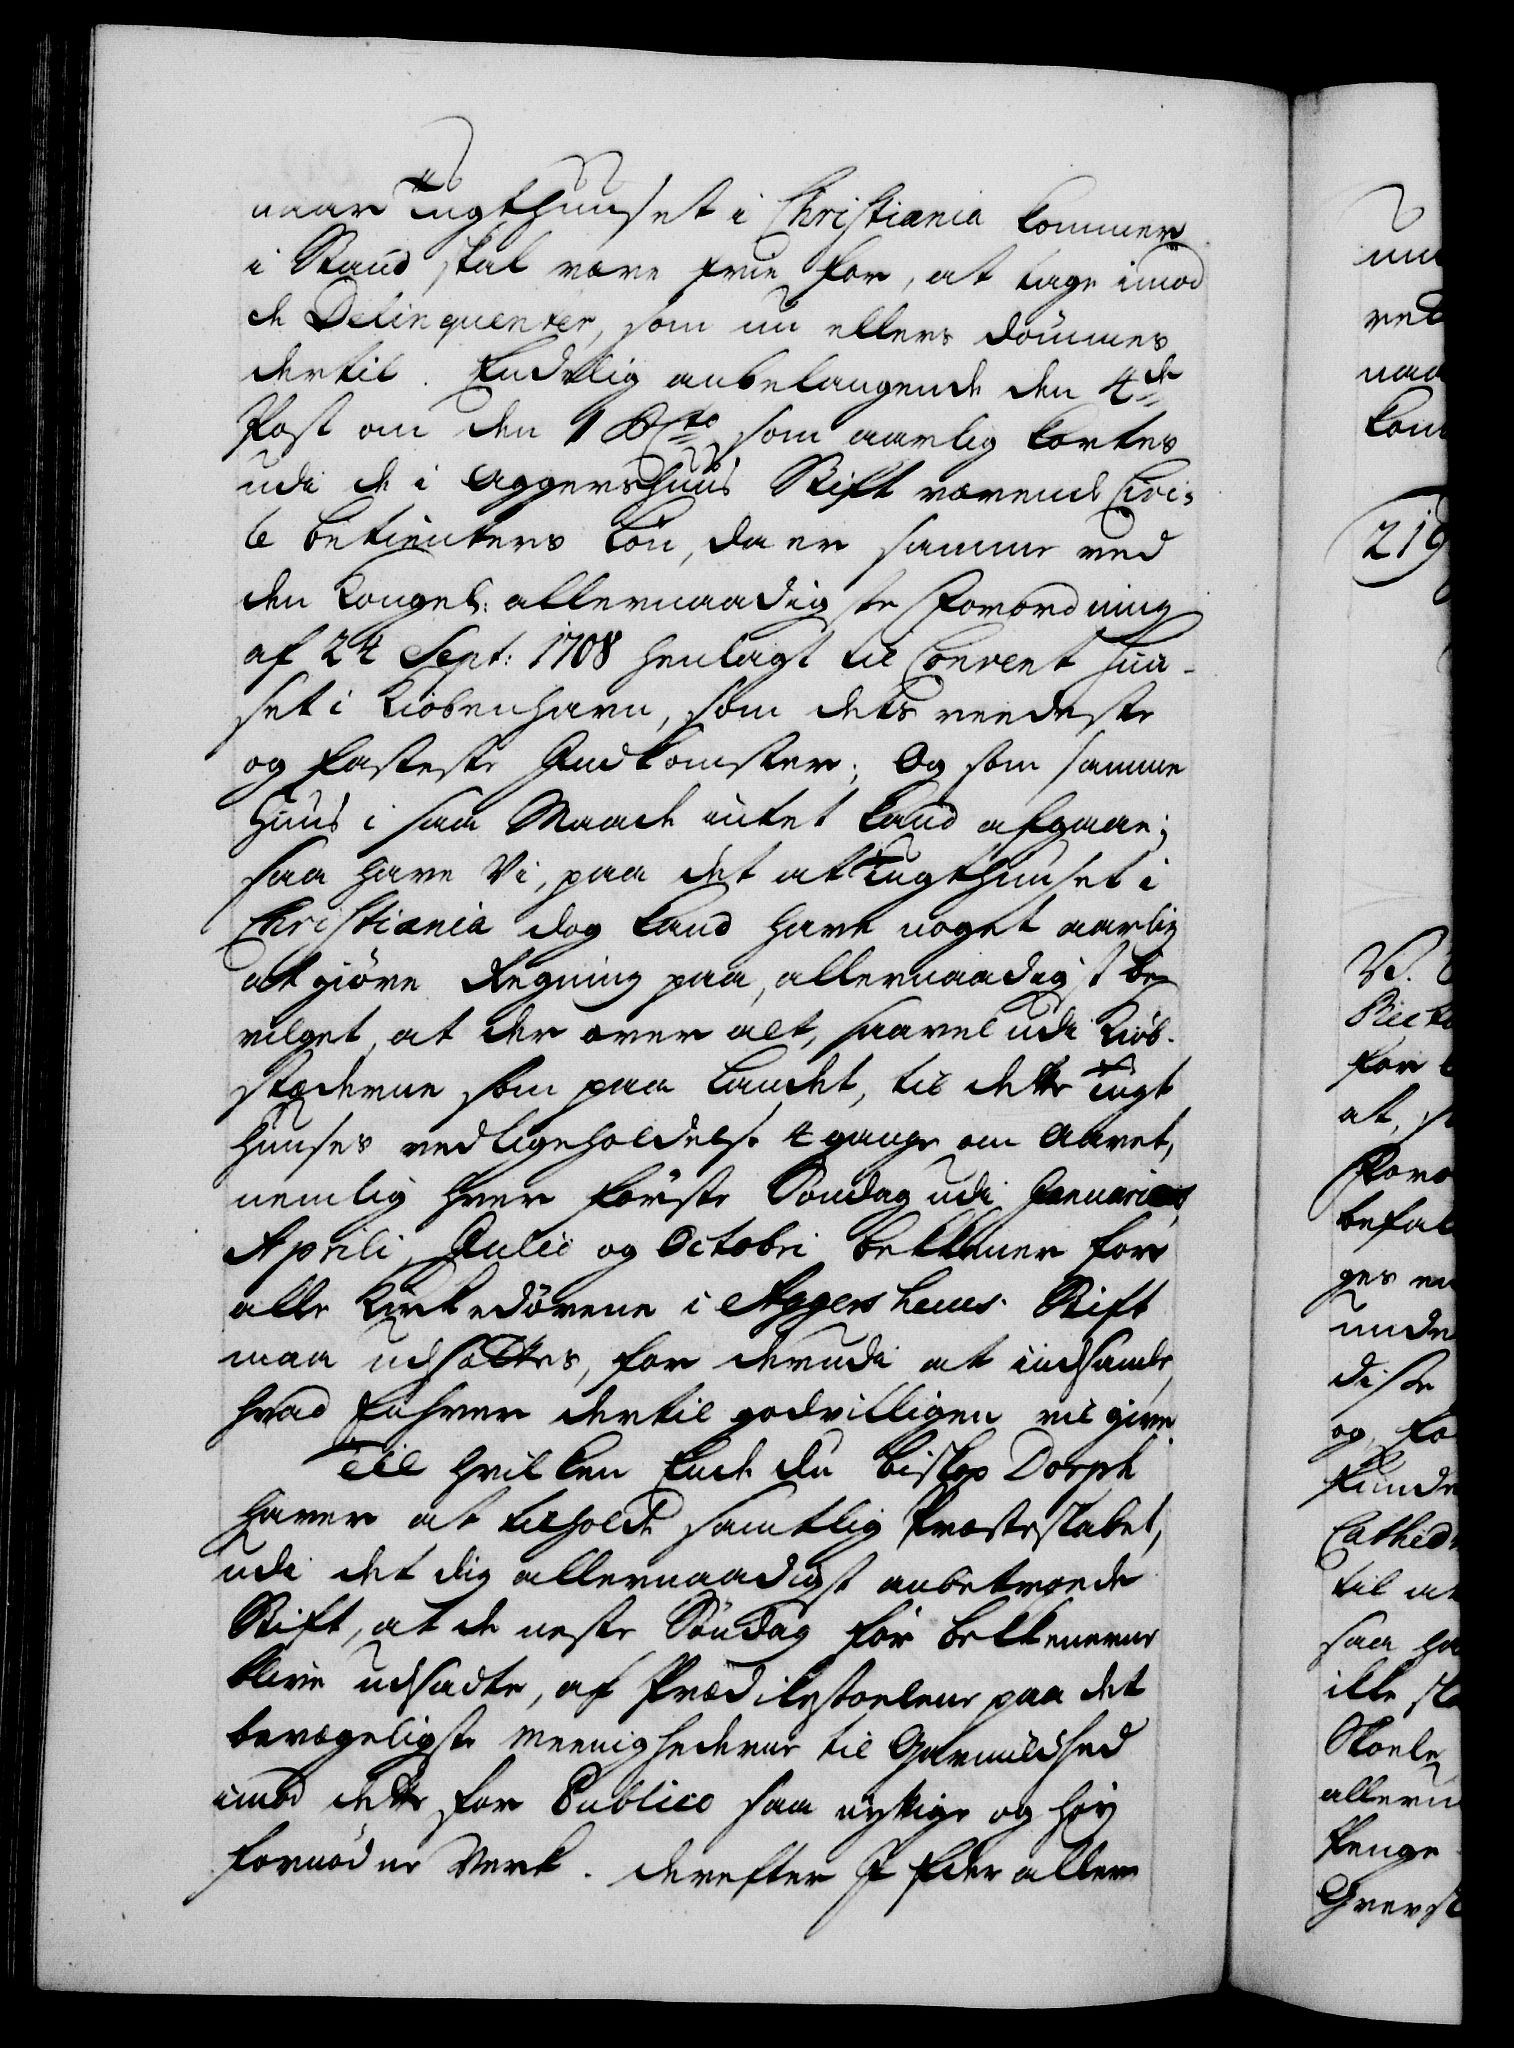 naar Tugthuuset i Christiania kommer
i Stand skal være frie for, at tage imod
de Delinquenter, som nu ellers dömmes
dertil. Endelig anbelangende den 4de
Post om den 1 PCto som aarlig kortes
udi de i Aggershuus Stift værende Civi-
le betienters Lön, da er samme ved
den Kongel: allernaadigste Forordning
af 24 Sept: 1708 henlagt til Convent Huu-
set i Kiöbenhavn, som dets reedeste
og fasteste Indkomster; Og som samme
Huus i saa Maade intet kand afgaae;
saa have Vi, paa det at Tugthuuset i
Christiania dog kand have noget aarlig
at giöre Regning paa, allernaadigst be-
vilget, at der over alt, saavel udi Kiöb-
stæderne som paa Landet, til dette Tugt
huuses vedligeholdelse 4 gange om Aaret,
nemlig hver förste Söndag udi Januario,
Aprili, Julii og Octobri Bekkener for
alle Kirkedörene i Aggershuus Stift
maa udsættes, for derudi at indsamle,
hvad Enhver dertil godvilligen vil give.
Til hvilken Ende du Biskop Dorph
haver at tilholde samtlig Præsteskabet,
udi det dig allernaadigst anbetroede
Stift, at de neste Söndag för bekkenerne
blive udsadte, af Prædikestoelene paa det
bevægeligste Meenighederne til Gavmildhed
imod dette for Publico saa nyttige og höy
fornödne Werk. derefter I Eder aller
un
ved
naa
kom
219
V. C
Riecka
for
at, s
Foro
befal
ges
unde
diste
og fo
funde
Cathed
til at
saa ha
ikke
Skoele
allern
Penge
Grevs